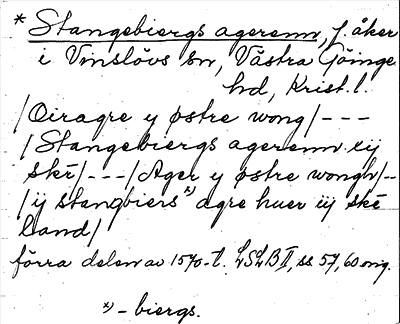 * Stangebiergs agerenn, f. åker
i Vinslövs sn, Västra Göinge
hd, Krist. l.
/Oiragre y østre wong/---
/Stangebiergs agerenn iij
skē/---/Ager y østre wongh/--
/ij stangbiers x) agre huer iij skē
land/
förra delen av 1570-t. LSLB II, ss 57, 60 omg.
x) - biergs.